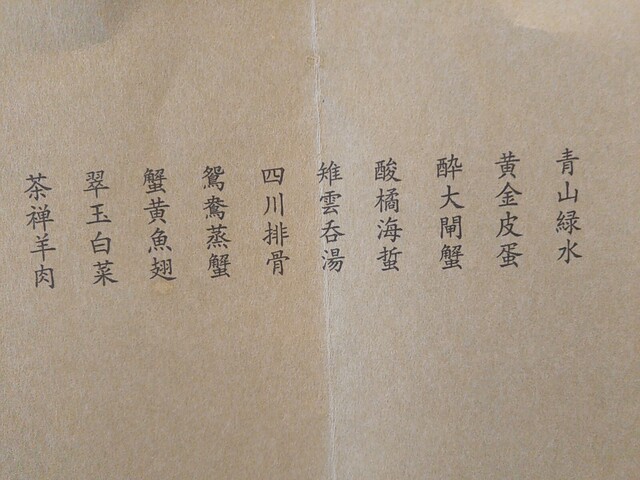 青山緑水
黄金皮蛋
酔大閘蟹
酸橘海蜇
雉雲呑湯
四川排骨
鴛鴦蒸蟹
蟹黄魚翅
翠玉白菜
茶禅羊肉